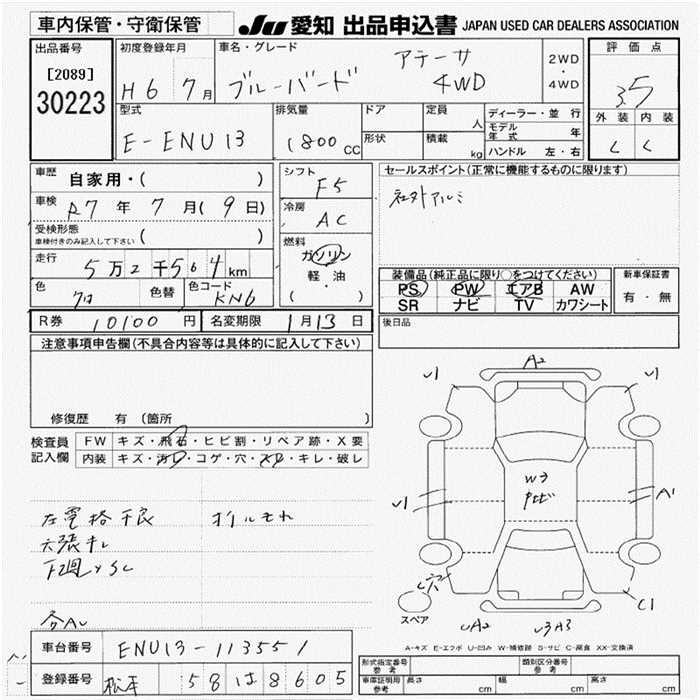 車内保管・守衛保管
JU 愛知 出品申込書 JAPAN USED CAR DEALERS ASSOCIATION
出品番号
[2089]
30223
初度登録年月
H6 7月
車名・グレード
ブルーバード アテーサ 4WD
2WD・4WD
評価点
3.5
外装 内装
C C
型式
E-ENU13
排気量
1800 CC
ドア
形状
定員 人
積載 kg
ディーラー・並行
モデル年式 年
ハンドル 左・右
車歴 自家用・( )
車検 R7年7月(9日)
受検形態
車検付きのみ記入して下さい ( )
走行 5万2千564km
色 クロ 色替 色コード KN6
シフト F5
冷房 AC
燃料
ガソリン
軽・油
( ・ )
セールスポイント(正常に機能するものに限ります)
社外アルミ
装備品(純正品に限り○をつけてください)
PS PW エアB AW
SR ナビ TV カワシート
新車保証書
有・無
後日品
R券 10100円 名変期限 1月13日
注意事項申告欄(不具合内容等は具体的に記入して下さい)
修復歴 有(箇所 )
検査員記入欄
FW キズ・飛石・ヒビ割・リペア跡・X要
内装 キズ・汚れ・コゲ・穴・スレ・キレ・破レ
左電格不良 オイルもれ
天張キレ
下廻りSC
各AU
A2
W3
A1
C1
UA2 U3A3
スペア
A-キズ E-エクボ U-凹み W-補修跡 S-サビ C-腐食 XX-交換済
車台番号 ENU13-113551
登録番号 松本 58 は 8605
形式指定番号 参考
類別区分番号 参考
車庫証明用 参考 長さ cm 幅 cm 高さ cm